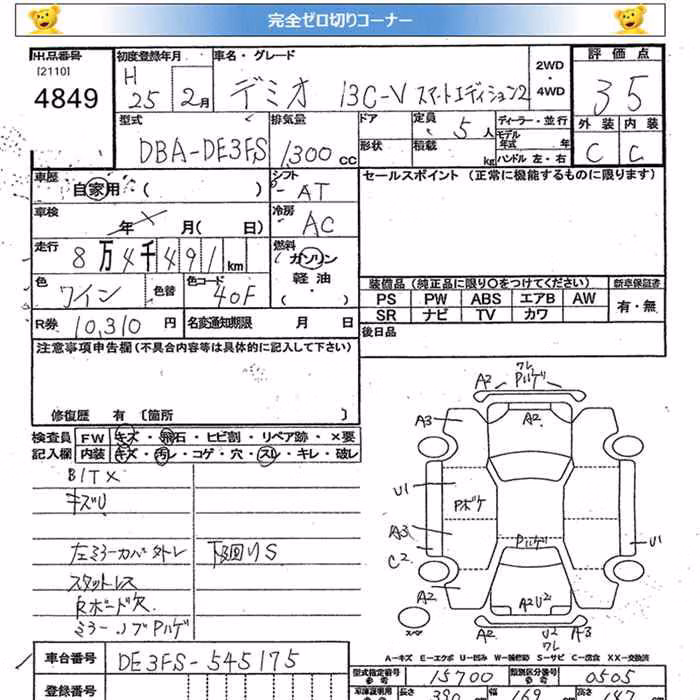 完全ゼロ切りコーナー
出品番号
[2110]
4849
初度登録年月
H
25 2月
車名・グレード
デミオ 13C-V スマートエディション2
2WD
・
4WD
評価点
3 5
外装 内装
C C
型式
DBA-DE3FS
排気量
1,300 cc
ドア
形状
定員
5 人
積載
kg
ディーラー・並行
モデル
年式 年
ハンドル 左・右
車歴
自家用 ( )
シフト
-AT
セールスポイント (正常に機能するものに限ります)
車検
年 月( 日)
冷房
AC
走行
8万4千491 km
燃料
ガソリン
軽油
( ・ )
色
ワイン
色替
色コード
40F
装備品 (純正品に限り○をつけてください)
新車保証書
PS PW ABS エアB AW
SR ナビ TV カワ
有・無
R券 10,310 円
名変通知期限 月 日
後日品
注意事項申告欄 (不具合内容等は具体的に記入して下さい)
修復歴 有 〔箇所 〕
検査員
記入欄
FW キズ・飛石・ヒビ割・リペア跡・×要
内装 キズ・汚レ・コゲ・穴・スレ・キレ・破レ
キズU
左ミラーカバー外レ
下回りS
スタットレス
Rボード欠
ミラー、ノブPハゲ
ワレ
A2 Pハゲ
A2
A3
U1
Pボケ
A3
C2
A2
Pハゲ
U1
A2U2
スペア
A2
U2
ワレ
A3
A-キズ E-エクボ U-凹み W-補修跡 S-サビ C-腐食 XX-交換済
車台番号
DE3FS-545175
型式指定番号
参考
15700
類別区分番号
参考
0505
登録番号
車庫証明用
長さ
390 cm
幅
169 cm
高さ
147 cm